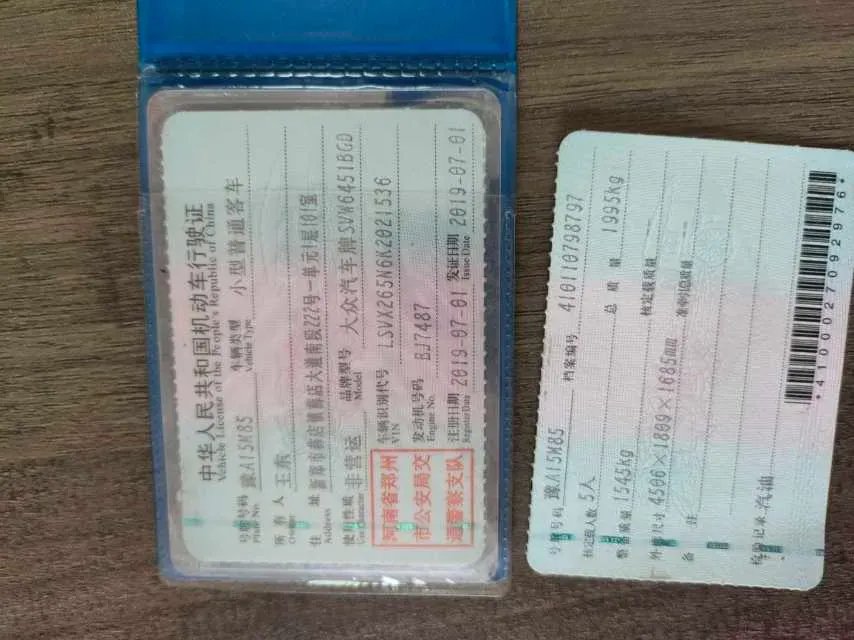 中华人民共和国机动车行驶证
Vehicle License of the People's Republic of China
号牌号码 豫A15M85 车辆类型 小型普通客车
Plate No. Vehicle Type
所有人 王东
Owner
住址 新郑市薛店镇薛店大道南段222号一单元1层101室
Address
使用性质 非营运 品牌型号 大众汽车牌SVW6451BGD
Use Character Model
河南省郑州
市公安局交
通警察支队
车辆识别代号 LSVX265N6K2021536
VIN
发动机号码 BJ7487
Engine No.
注册日期 2019-07-01 发证日期 2019-07-01
Register Date Issue Date
号牌号码 豫A15M85 档案编号 410110798797
核定载人数 5人 总质量 1995kg
整备质量 1545kg 核定载质量
外廓尺寸 4506×1809×1685mm 准牵引总质量
备注
检验记录 汽油
*4100002709297 6*